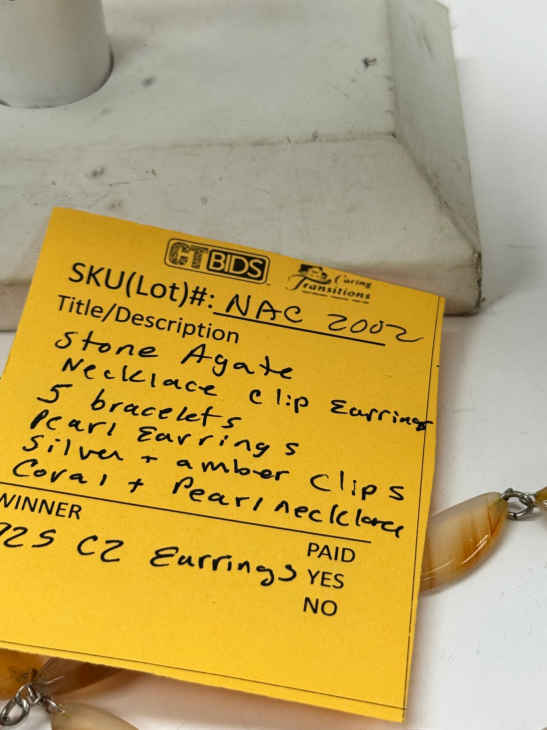 CTBIDS
Caring
Transitions
SKU(Lot)#: NAC 2002
Title/Description
Stone Agate
Necklace clip Earrings
5 bracelets
Pearl Earrings
Silver + amber clips
Coral + Pearl necklace
WINNER
925 CZ Earrings
PAID
YES
NO